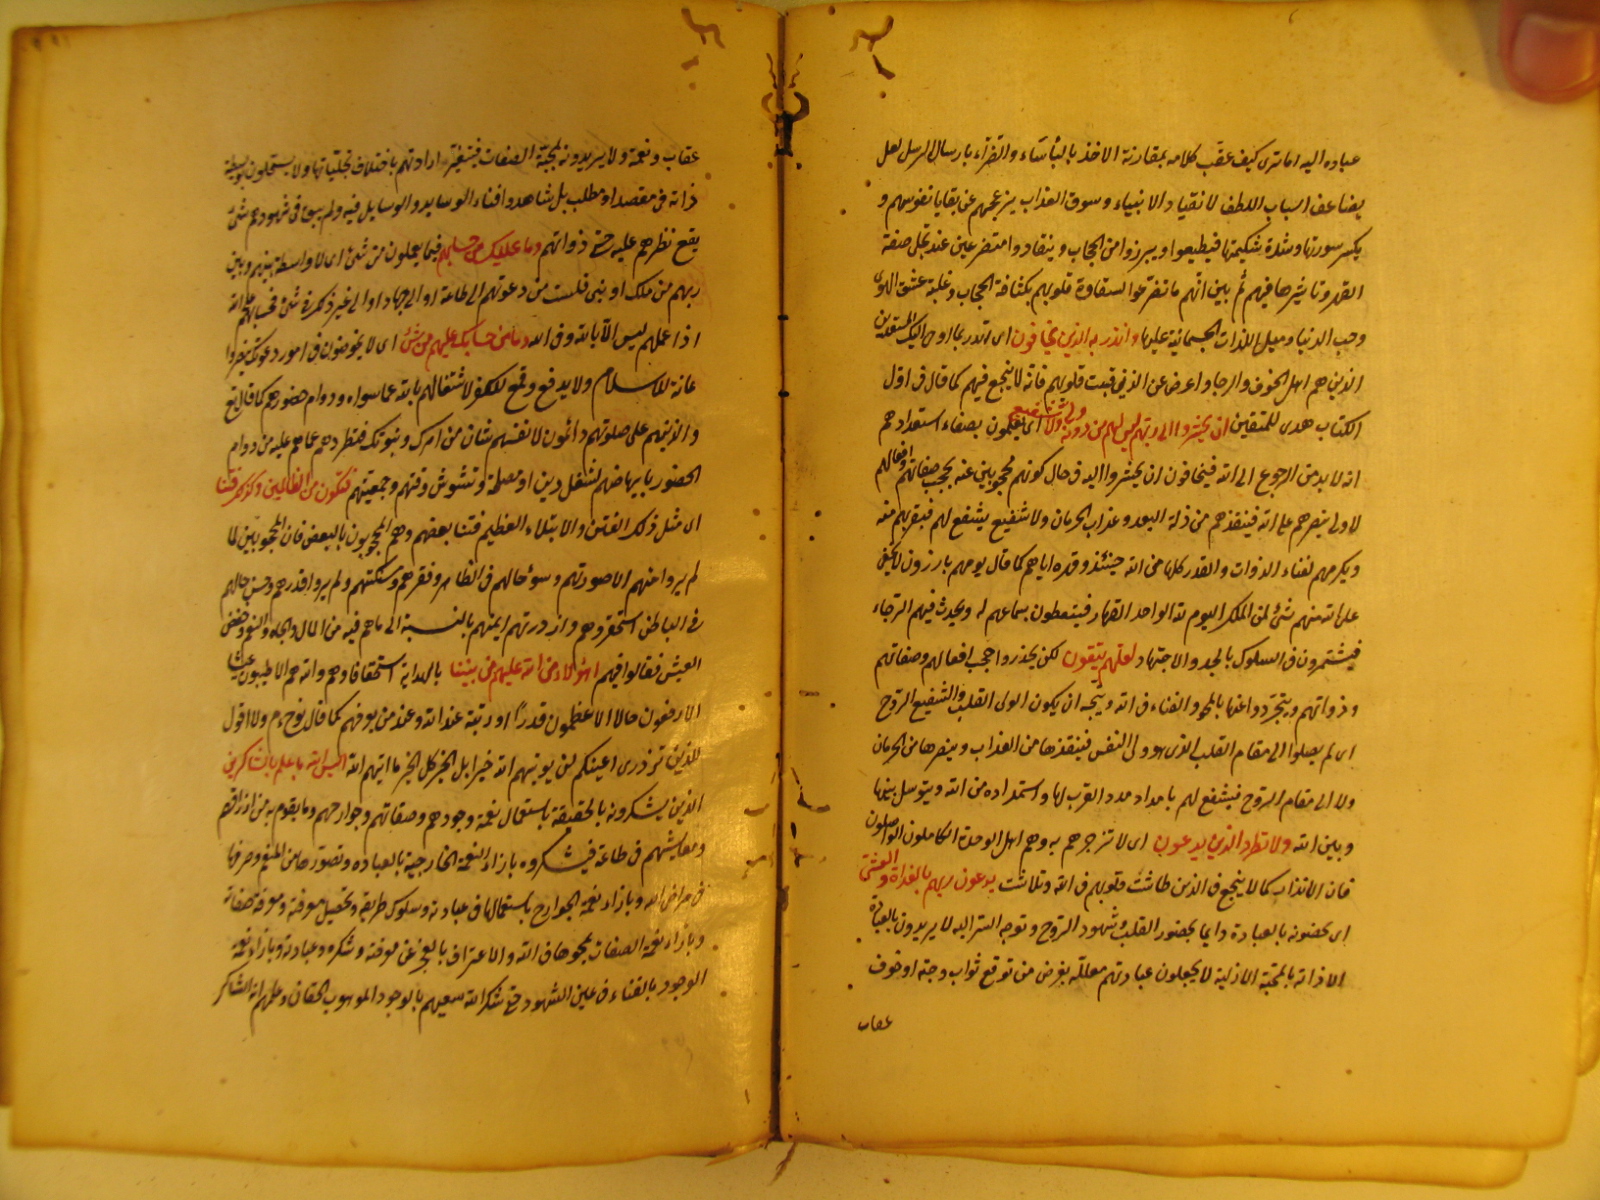 عباده اليه اما ترى كيف عقّب كلامه بمقارنة الاخذ بالبأساء والضرّاء بارسال الرسل لعل
يضاعف اسباب اللطف لانقياد الانبياء وسوق العذاب يزعجهم عن بقايا نفوسهم و
يكسر سورتها وشدة شكيمتها فيطيعوا ويبرزوا من الحجاب وينقادوا متضرعين عند تجلى صفة
القهر وتأثيرها فيهم ثم بين انهم ما تضرعوا لقساوة قلوبهم بكثافة الحجاب وغلبة عشق الهوى
وحب الدنيا وميل اللذات الجسمانية عليها وانذر به الذين يخافون اى انذر بما اوحى اليك المستعدين
الذين هم اهل الخوف والرجا واعرض عن الذين قست قلوبهم فانه لا ينجع فيهم كما قال فى اوّل
الكتاب هدى للمتقين ان يحشروا الى ربهم ليس لهم من دونه ولى ولا شفيع اى يعلمون بصفاء استعدادهم
انه لا بد من الرجوع الى الله فيخافون ان يحشروا اليه فى حال كونهم محجوبين عنه بحجب صفاتهم وافعالهم
لا ولى ينصرهم غير الله فينقذهم من ذلة البعد وعذاب الحرمان ولا شفيع يشفع لهم فيقربهم منه
ويكرمهم لفناء الذوات والقدر كلها فى الله حينئذ وقدره اياهم كما قال يوم هم بارزون لا يخفى
على الله منهم شئ لمن الملك اليوم لله الواحد القهار فيتعظون بسماعهم له ويحدث فيهم الرجاء
فيشتمرون فى السلوك بالجد والاجتهاد لعلهم يتقون لكى يحذروا حجب افعالهم وصفاتهم
وذواتهم ويتجردوا عنها بالمحو والفناء فى الله ويتجه ان يكون الولى القلب والشفيع الروح
اى لم يصلوا الى مقام القلب الذى هو ولى النفس فينقذها من العذاب وينصرها من الحرمان
ولا الى مقام الروح فيشفع لهم بامداد مدد القرب لها واستمداده من الله ويتوسل بينها
وبين الله ولا تطرد الذين يدعون اى لا تزجرهم به وهم اهل الوحدة الكاملون الواصلون
فان الانذاب كما لا ينجع فى الذين طاشت قلوبهم فى الله وتلاشت يدعون ربهم بالغداة والعشى
اى يخصونه بالعبادة دايما بحضور القلب وشهود الروح وتوجه السر اليه لا يريدون بالعبادة
الا ذاته بالمحبة الازلية لا يجعلون عبادتهم معللة بغرض من توقع ثواب وجنة او خوف
عقاب
عقاب ونقمة ولا يريدونه بمحبة الصفات فيتغير ارادتهم باختلاف تجلياتها ولا يستحلون توسيط
ذاته فى مقصد او مطلب بل شاهدوا فناء الوسايط والوسايل فيه ولم يبق فى شهودهم شئ
يقع نظرهم عليه حتى ذواتهم وما عليك من حسابهم فيما يعملون من شئ اى لا واسطة بينهم وبين
ربهم من ملك او نبى فلست من دعوتهم الى طاعة او الى جهاد او الى غير ذلك فى شئ فحسابهم على الله
اذا عملهم ليس الا بالله وفى الله وما من حسابك عليهم من شئ اى لا يخوضون فى امور دعوتك بنصر او
عانة للاسلام ولا بدفع وقمع للكفر لاشتغالهم بالله عما سواه ودوام حضورهم كما قال تع
والذين هم على صلوتهم دائمون لا نفسهم شان من امرك ونبوتك فتطردهم عما هم عليه من دوام
الحضور بابرامهم لشغل دين او مصلحة وتشوش وقتهم وجمعيتهم فتكون من الظالمين وكذلك فتنا
اى مثل ذلك الفتن والابتلاء العظيم فتنا بعضهم وهم المحجوبون بالبعض فان المحجوبين لما
لم يروا منهم الا صورتهم وسوء حالهم فى الظاهر وفقرهم ومسكنتهم ولم يروا قدرهم وحسن حالهم
فى الباطن استحقروهم وازدرتهم اعينهم بالنسبة الى ما هم فيه من المال والجاه والتنعم وخفض
العيش فقالوا فيهم اهؤلاء من الله عليهم من بيننا بالهداية استحقاقا وهم والله هم الاطيبون عيشا
الارفعون حالا الاعظمون قدرًا ورتبة عند الله وعند من يعرفهم كما قال نوح ع م ولا اقول
للذين تزدرى اعينكم لن يؤتيهم الله خيرا بل الخير كل الخير ما اتيهم الله اليس الله باعلم بالشاكرين
الذين يشكرونه بالحقيقة باستعمال نعمة وجودهم وصفاتهم وجوارحهم وما يقوم به من ارزاقهم
ومعايشهم فى طاعة فيشكروه بازاء النعمة الخارجية بالعبادة وتصورها من المنعم وصرفها
فى مراضى الله وبازاء نعمة الجوارح باستعمالها فى عبادته وسلوك طريقه وتحصيل معرفته ومعرفة صفاته
وبازاء نعمة الصفات بمحوها فى الله والاعتراف بالعجز عن معرفته وشكره وعبادته وبازاء نعمة
الوجود بالفناء فى عين الشهود حتى شكر الله سعيهم بالوجود الموهوب الحقانى وعلمهم انه الشاكر